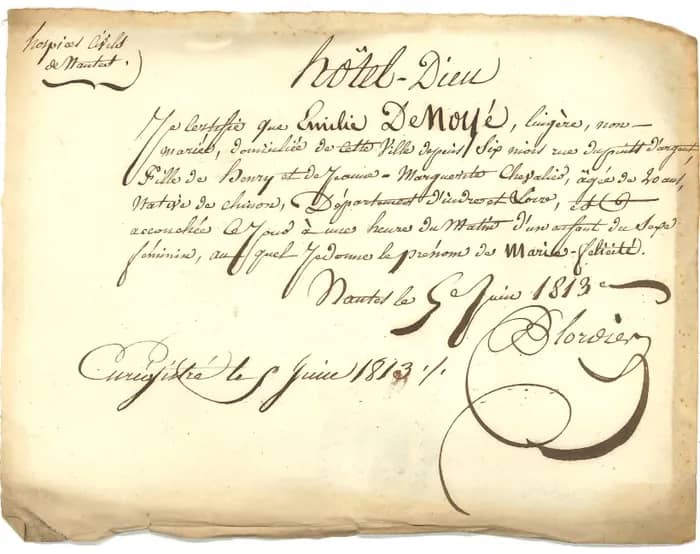 hospices Civils
de Nantes.
hôtel-Dieu
Je Certifie que Emilie DeNoyé, lingère, non-
mariée, domiciliée de cette Ville depuis Six mois rue du puits d'argent
Fille de henry et de Jeanne-Marguerite Chevalier, âgée de 20 ans,
Native de chinon, Département d'indre et Loire, est
accouchée Ce Jour à une heure du Matin d'un enfant du Sexe
féminin, au quel Je donne le prénom de Marie-félicité.
Nantes le 5e Juin 1813
Enregistré le 5 Juin 1813